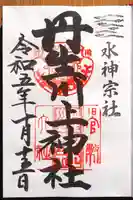 水神宗社
丹生川上神社
令和五年十月十三日